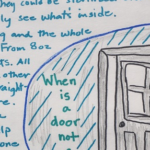 they could be
ly see what's inside.
g and the whole
From Box
ts. All
other
aight-
re.
a
lp
one
When
is
a
door
not